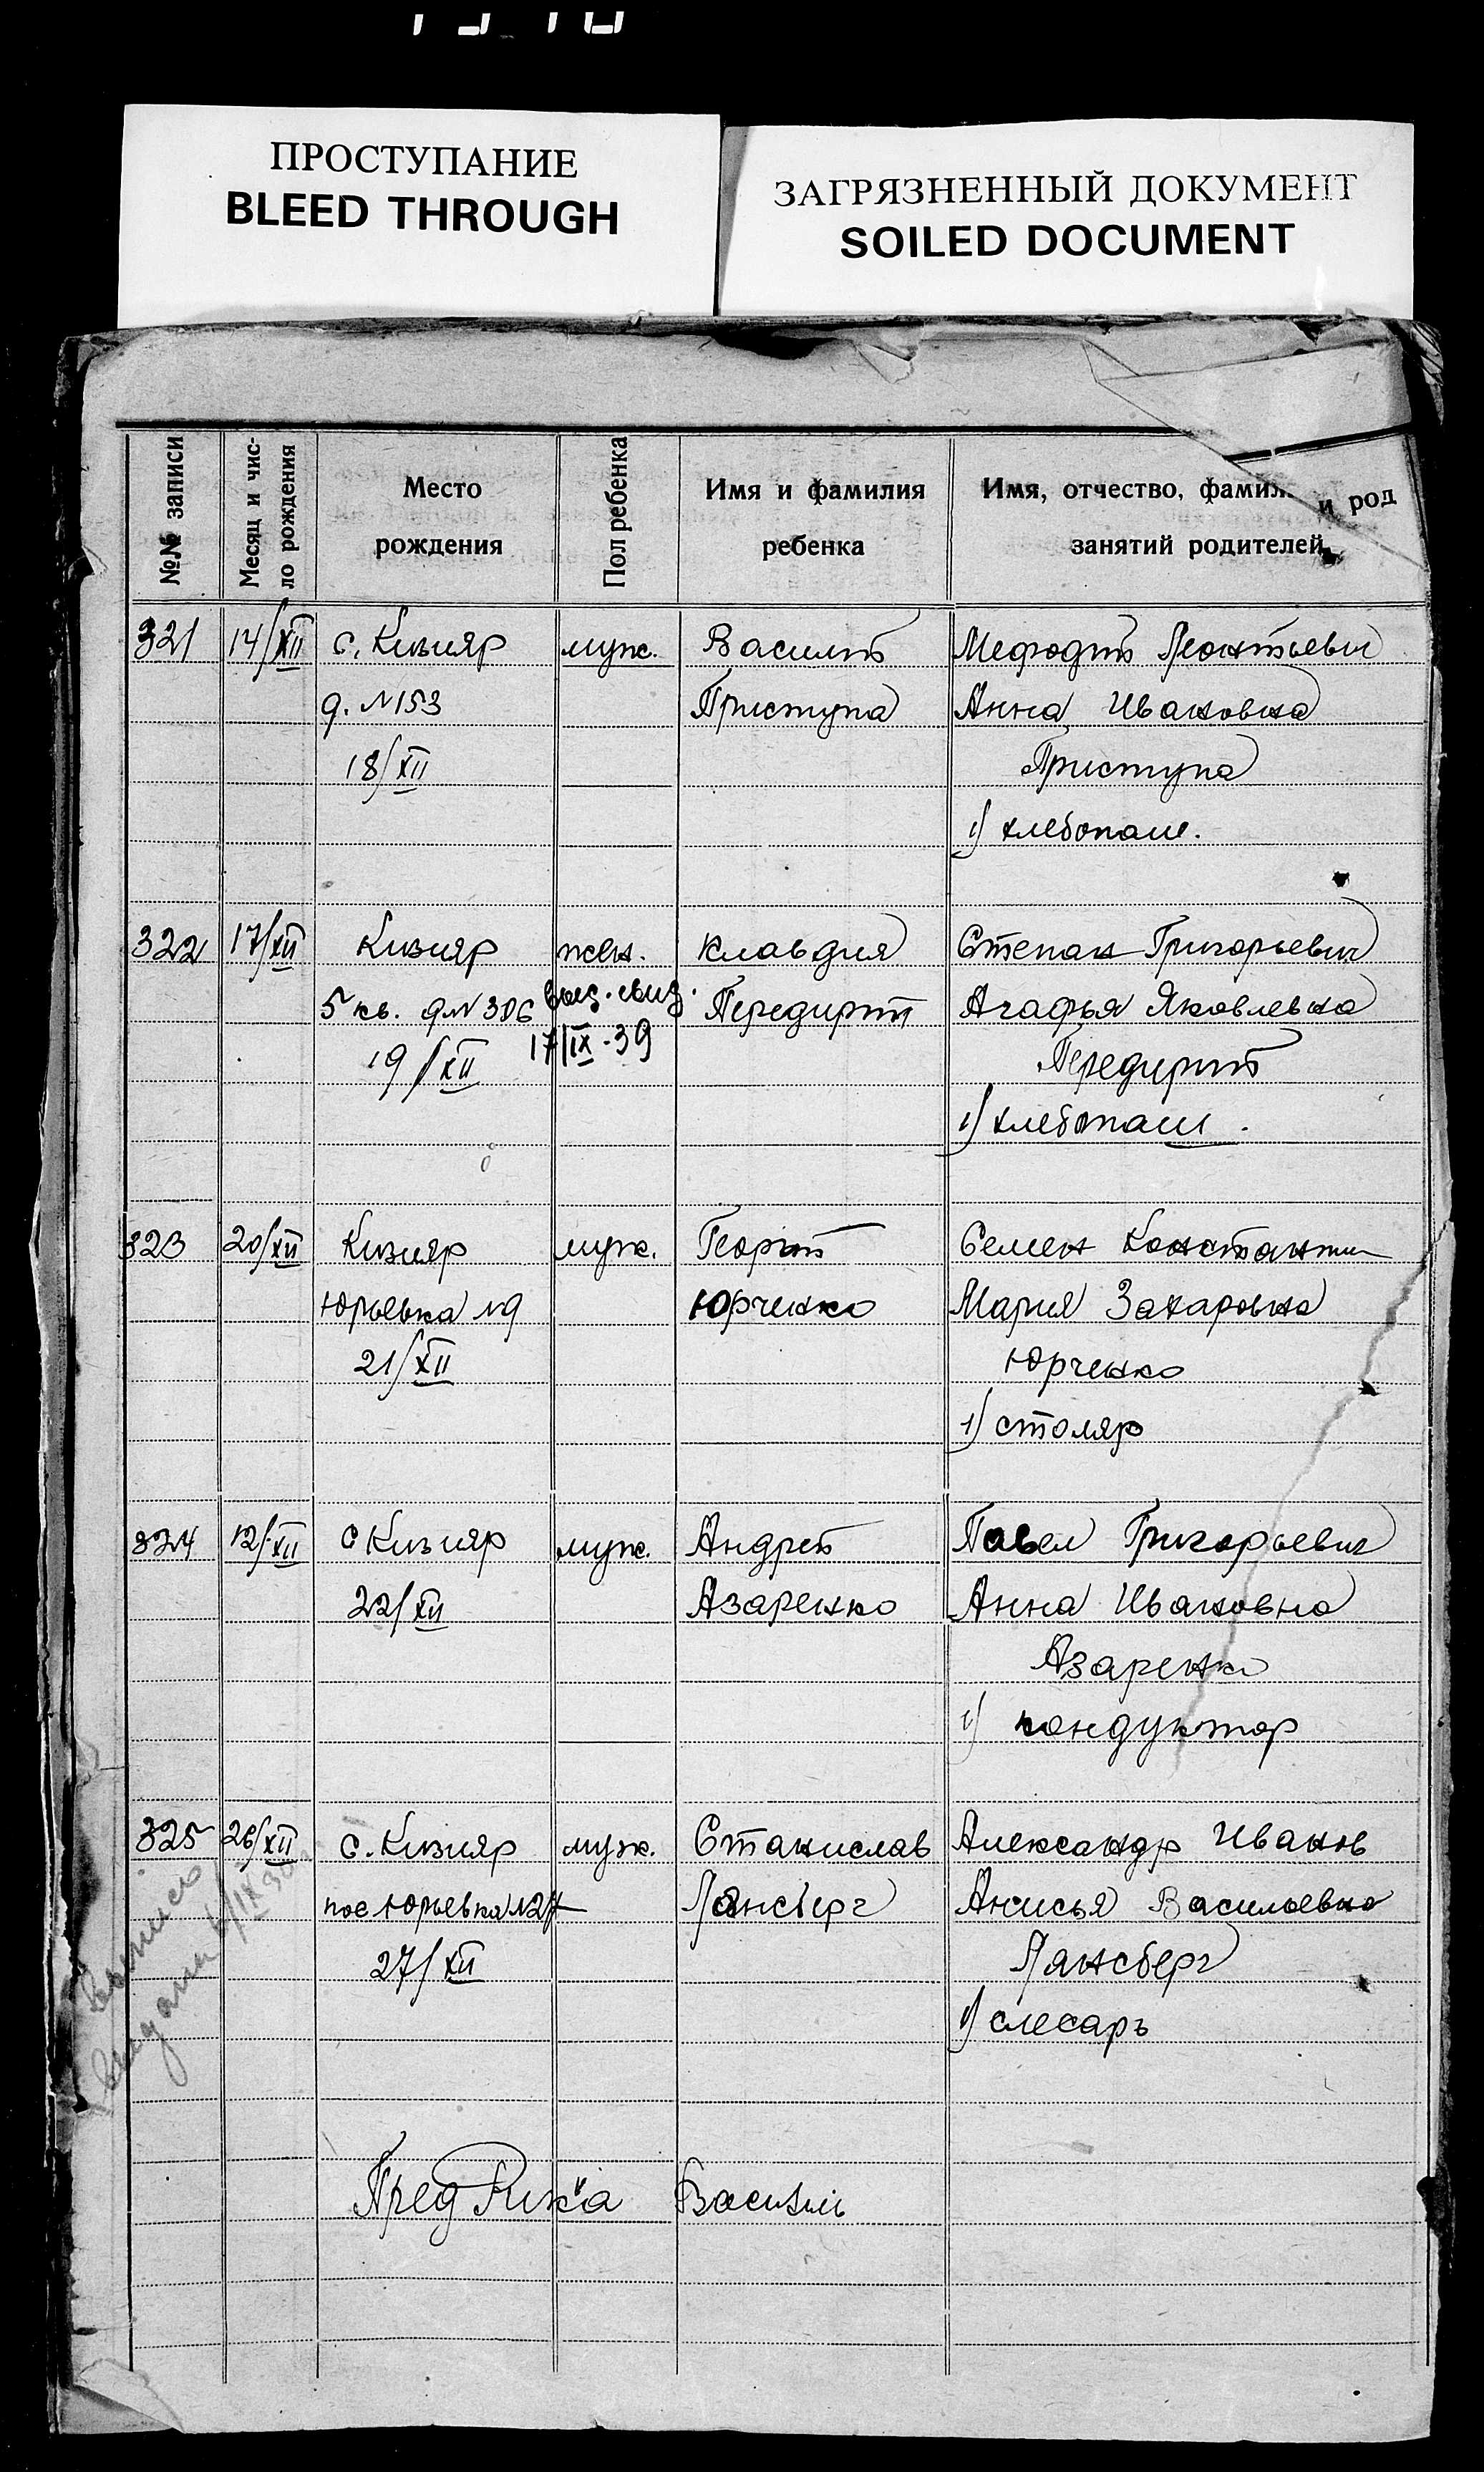 ПРОСТУПАНИЕ
BLEED THROUGH
ЗАГРЯЗНЕННЫЙ ДОКУМЕНТ
SOILED DOCUMENT
№№ записи
Месяц и чис-
ло рождения
Место
рождения
Пол ребенка
Имя и фамилия
ребенка
Имя, отчество, фамил. и род
занятий родителей
321 14/XII с. Кизияр муж. Василий Мефодий Леонтьевич
д. №153 Приступа Анна Ивановна
18/XII Приступа
1) хлебопаш.
322 17/XII Кизияр жен. Клавдия Степан Григорьевич
5 кв. д№ 306 выд. свид. Передирий Агафья Яковлевна
19/XII 17/IX-39 Передирий
1) хлебопаш.
323 20/XII Кизияр муж. Георгий Семен Константин
Юрьевка №9 Юрченко Мария Захаровна
21/XII Юрченко
1) столяр
324 12/XII с Кизияр муж. Андрей Павел Григорьевич
22/XII Азаренко Анна Ивановна
Азаренко
1) кондуктор
325 26/XII с. Кизияр муж. Станислав Александр Иванов
пос Юрьевка №27 Лансберг Анисья Васильевна
27/XII Лансберг
1) слесарь
выпись
выдана 6/IX
Пред Рика